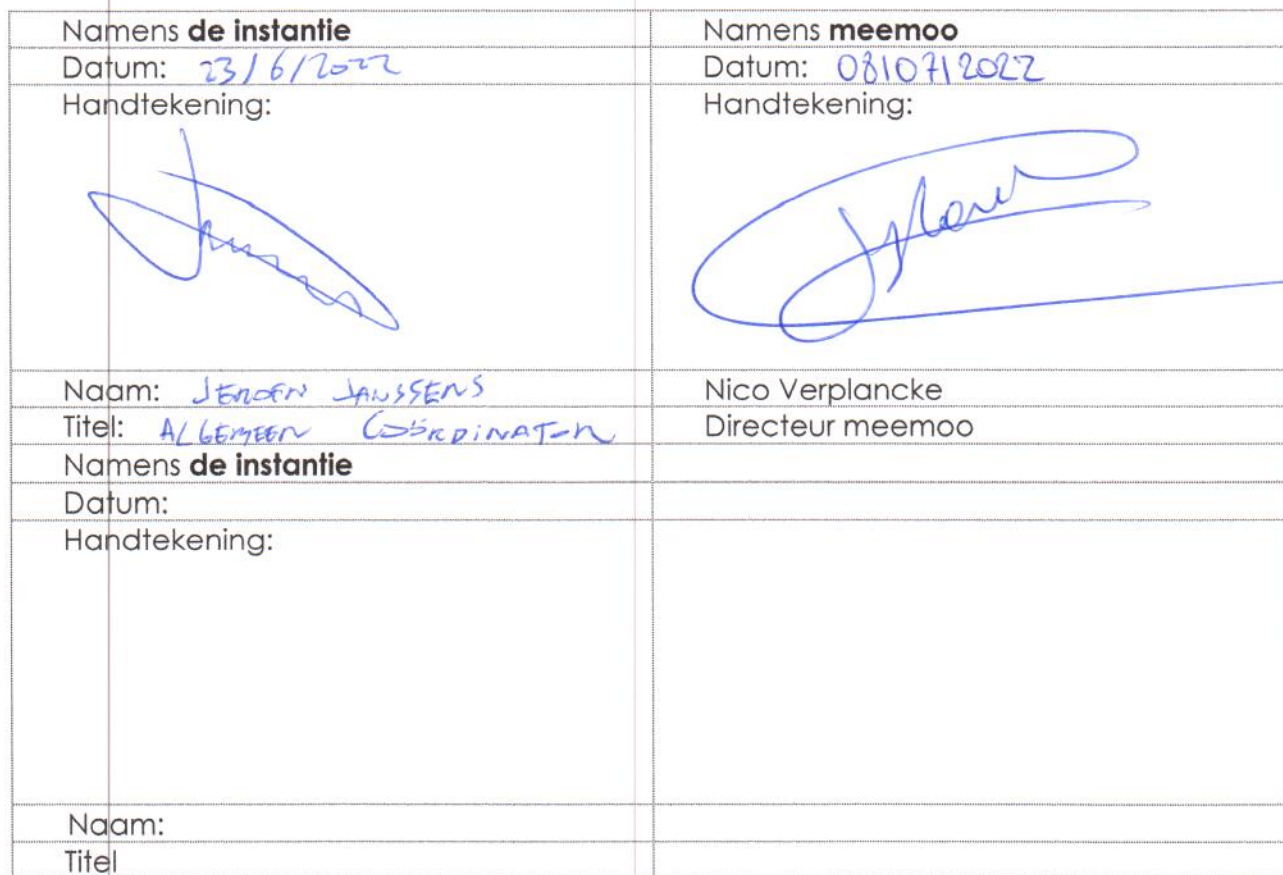 Namens de instantie
Namens meemoo
Datum: 23/6/2022
Datum: 08/07/2022
Handtekening:
Handtekening:
Naam: JEROEN JANSSENS
Nico Verplancke
Titel: ALGEMEEN COÖRDINATOR
Directeur meemoo
Namens de instantie
Datum:
Handtekening:
Naam:
Titel